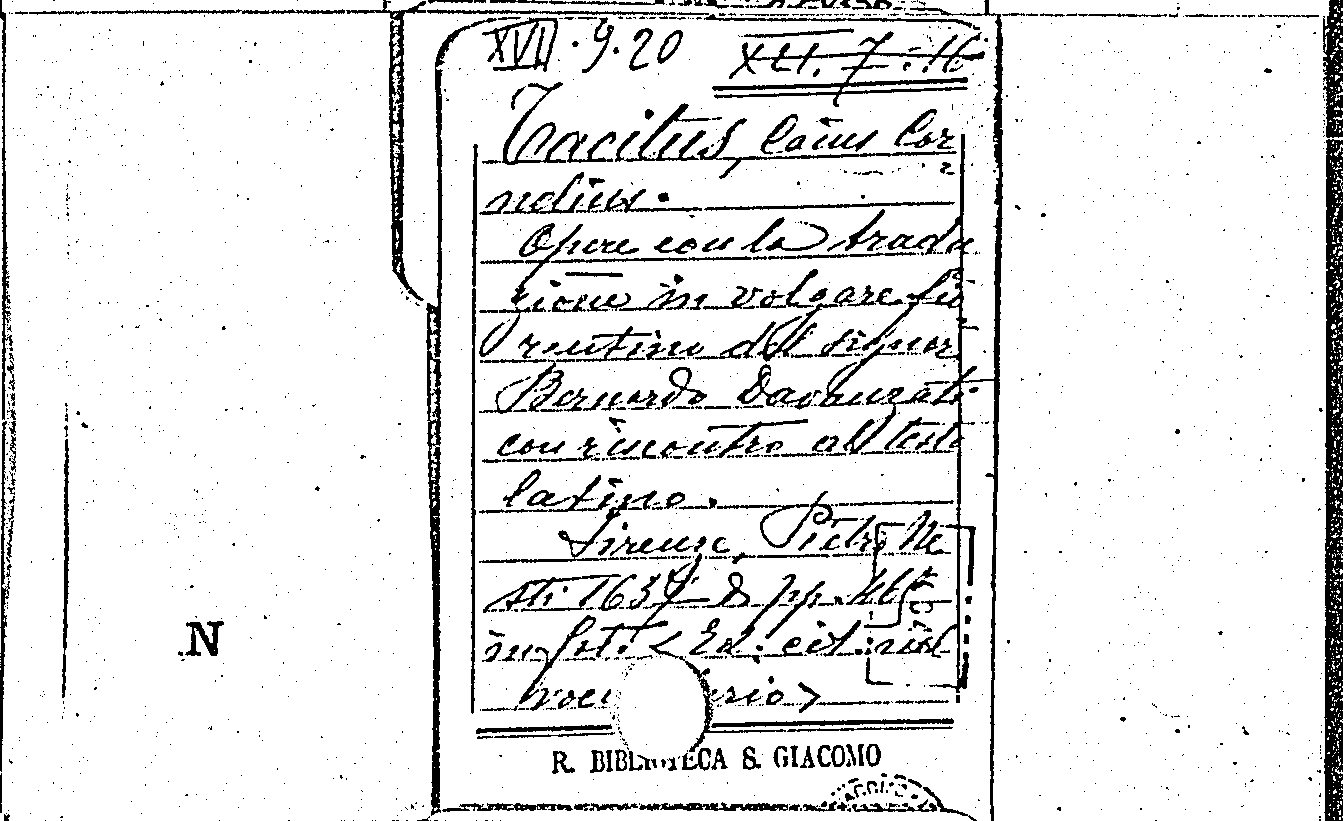 XVII. 9. 20 XLI. 7. 16
Tacitus, Caius Cor
nelius.
Opere con la tradu
zione in volgare fio
rentino del signor
Bernardo Davanzati
con rincontro al testo
latino.
Firenze, Pietro Ne
sti 1637 8 pp.
in fot. < Ed. cit. nel
voc rio>
N
R. BIBLIOTECA S. GIACOMO